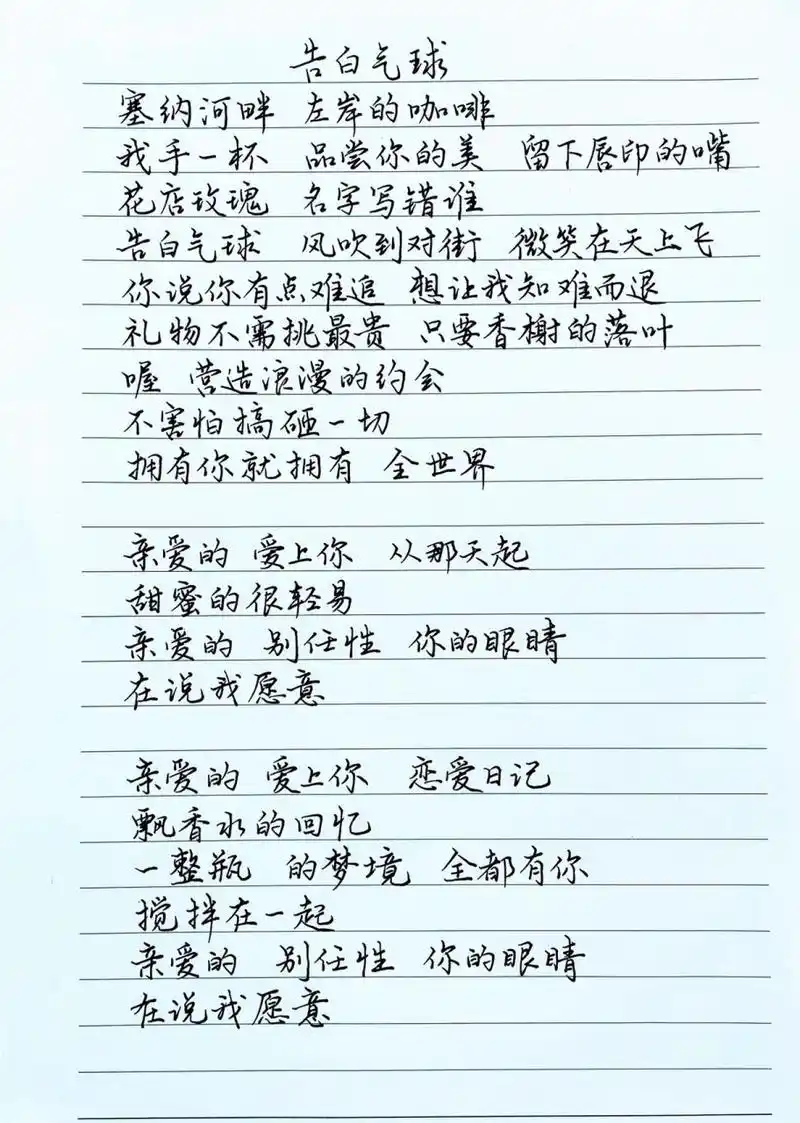 告白气球
塞纳河畔 左岸的咖啡
我手一杯 品尝你的美 留下唇印的嘴
花店玫瑰 名字写错谁
告白气球 风吹到对街 微笑在天上飞
你说你有点难追 想让我知难而退
礼物不需挑最贵 只要香榭的落叶
喔 营造浪漫的约会
不害怕搞砸一切
拥有你就拥有 全世界
亲爱的 爱上你 从那天起
甜蜜的很轻易
亲爱的 别任性 你的眼睛
在说我愿意
亲爱的 爱上你 恋爱日记
飘香水的回忆
一整瓶 的梦境 全都有你
搅拌在一起
亲爱的 别任性 你的眼睛
在说我愿意